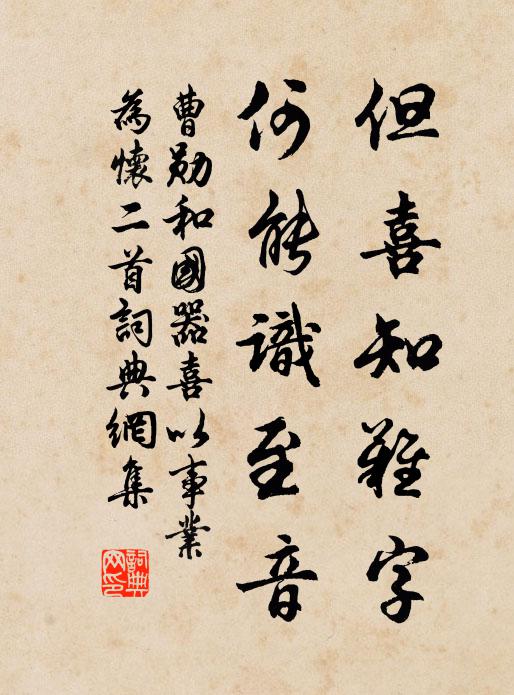 但喜知難字
何能識至音
曹勛和國器喜以事業
為懷二首詞典網集
詞典網印